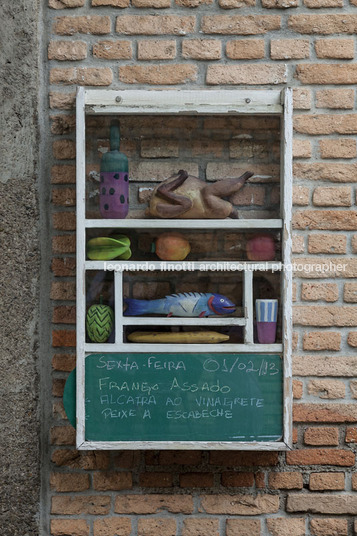 leonardo finotti architectural photographer
SEXTA-FEIRA 01/02/13
FRANGO ASSADO
ALCATRA AO VINAGRETE
PEIXE A ESCABECHE